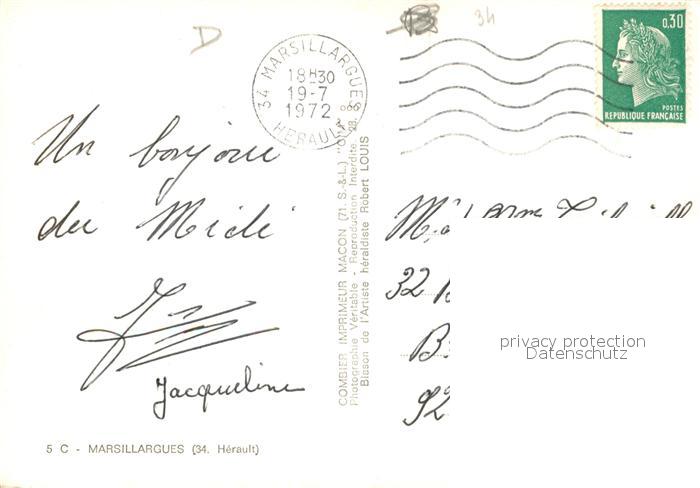 D
34
34 MARSILLARGUES
18H30
19-7
1972
HERAULT
0,30
POSTES
REPUBLIQUE FRANÇAISE
Un bonjour
du Midi
Jacqueline
5 C - MARSILLARGUES (34. Hérault)
COMBIER IMPRIMEUR MACON (71. S.-&-L.)
Photographie Véritable - Reproduction Interdite
Blason de l'Artiste héraldiste Robert LOUIS
32
B
92
privacy protection
Datenschutz